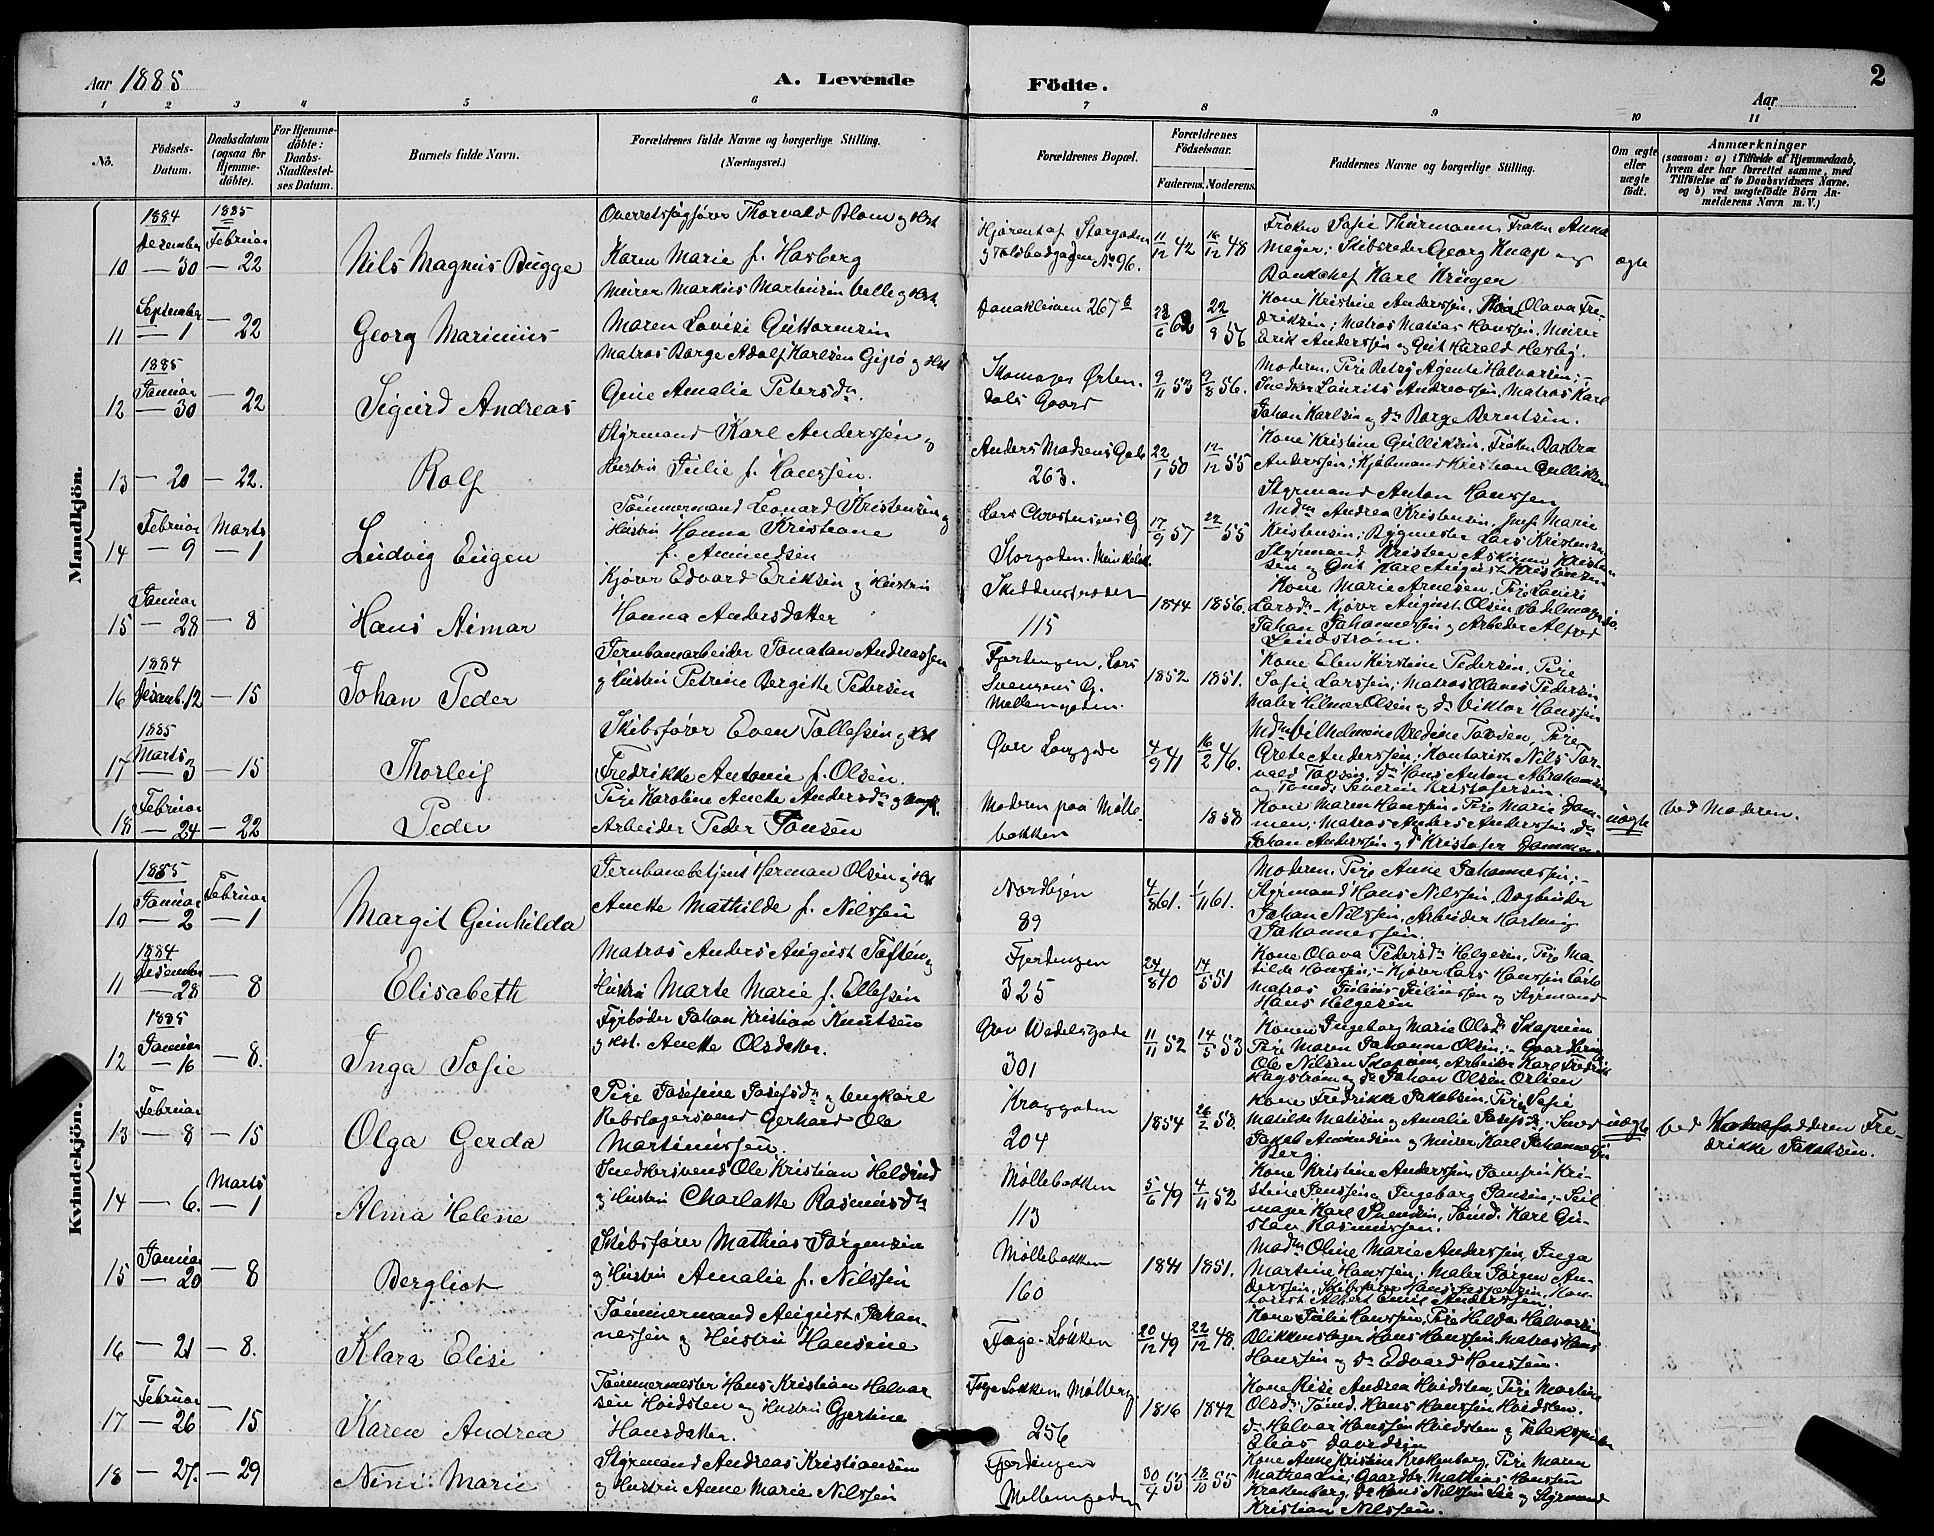 Aar 1885
A. Levende
Födte.
Aar
2
1 2 3 4 5 6 7 8 9 10 11
No.
Födsels-
Datum.
Daabsdatum
(ogsaa for
Hjemme-
döbte).
For Hjemme-
döbte:
Daabs-
Stadfæstel-
ses Datum.
Barnets fulde Navn.
Forældrenes fulde Navne og borgerlige Stilling.
(Næringsvei.)
Forældrenes Bopæl.
Forældrenes
Födselsaar.
Faderens. Moderens.
Faddernes Navne og borgerlige Stilling.
Om ægte
eller
uægte
födt.
Anmærkninger
(saasom: a) i Tilfælde af Hjemmedaab,
hvem der har forrettet samme, med
Tilföielse af to Daabsvidners Navne,
og b) ved uægtefödte Börn An-
melderens Navn m. V.)
Mandkjön.
1884 1885
Dezember Februar
10 — 30 — 22
Nils Magnus Bugge
Overretssagfører Thorvald Blom og Hst
Karen Marie f. Hasberg
Hjørnet af Storgaden
og Toldbodgaden No 96.
11/12 42 16/12 48
Frøken Sofie Thurmann, Frøken Anna
Meyer; Skibsreder Georg Knap og
Bankchef Karl Krüger
ægte
September
11 — 1 — 22
Georg Marinius
Murer Markus Martinsen Velle og Hst.
Maren Lovise Guttormsen
Danakleiven 267 b
22/8 56
Kone Kristine Anderssen, Olava Fre-
driksen; Matros Matias Hanssen, Murer
Erik Anderssen og Harald Hesby.
1885
Januar
12 — 30 — 22
Sigurd Andreas
Matros Borge Adolf Karlsen Gipø og Hst
Gine Amalie Petersdr.
Skomager Ørten-
dals Gaard
9/11 53 9/8 56.
Moderen, Pige Betsy Agente Halvorsen; -
Snedker Laurits Andreassen, Matros Karl
Johan Karlsen og do Borge Berntsen.
13 — 20 — 22.
Rolf
Styrmand Karl Anderssen og
Hustru Julie f. Hanssen.
Anders Madsens Gade
263.
22/1 50 12/12 55
Kone Kristine Gulliksen, Frøken Barbra
Anderssen; Kjøbmand Kristian Gulliksen
Styrmand Anton Hanssen
Februar Marts
14 — 9 — 1
Ludvig Eugen
Tømmermand Leonard Kristensen og
Hustru Hanna Kristiane
f. Amundsen
Lars Christensens G.
Storgaden.
17/9 57
55
Mdm Andrea Kristensen, Jmf. Marie
Kristensen; Bygmester Lars Kristensen
Styrmand Kristen Askim Kristen-
sen og Karl August Kristensen
Januar
15 — 28 — 8
Hans Aimar
Kjører Edvard Eriksen og Hustru
Hanna Andersdatter
115
1844 1856.
Kone Marie Arnesen, Pige Lovise
Larsdr - Kjører August Olsen, Sadelmagersv.
Johan Johannessen og Arbeider Alfred
Lindstrøm.
1884
Desemb. 12
16 — 15
Johan Peder
Jernbanearbeider Jonatan Andreassen
og Hustru Petrine Bergitte Pedersen
Fjerdingen, Lars
Svensens G.
Mellemgaden.
1852 1851.
Kone Elen Kirstine Pedersen, Pige
Sofie Larssen; Matros Olaves Pedersen
Maler Hilmer Olsen og do Viktor Hanssen
1885
Marts
17 — 3 — 15
Thorleif
Skibsfører Even Tollefsen og Hst
Fredrikke Antonie f. Olsen.
Øvre Langgade
4/9 41 16/2 46.
Mdm Vilhelmine Bredine Tovsen, Pige
Grete Anderssen; Kontorist Nils Tor-
vald Tovsen, do Hans Anton Abrahamsen
og Tømd. Severin Kristofersen
Februar
18 — 24 — 22
Peder
Pige Karoline Anette Andersdr og Ungk.
Arbeider Peder Jonsen
Moderen paa Mølle-
bakken
1858
Kone Maren Hanssen, Pige Marie Dam-
men; Matros Anders Anderssen, do
Johan Anderssen og do Kristofer Dammen
uægte
ved Moderen.
Kvindekjön.
1885
Januar Februar
10 — 2 — 1
Margit Gunhilda
Jernbanebetjent Herman Olsen og Hst
Anette Mathilde f. Nilssen
Nordbyen
89
4/8 61. 1/11 61.
Moderen, Pige Anne Johannessen; -
Styrmand Hans Nilssen, Bogbinder
Johan Nilssen, Arbeider Hartvig
Johannessen.
1884
Desember
11 — 28 — 8
Elisabeth
Matros Anders August Toften og
Hustru Marte Marie f. Ellefsen
Fjerdingen
325
24/8 40 14/5 51
Kone Olava Pedersdr Helgesen, Pige Ma-
tilde Hanssen; - Kjører Lars Hanssen
Matros Julius Juliussen og Styrmand
Hans Helgesen
1885
Januar
12 — 16 — 8.
Inga Sofie
Fyrbøder Johan Kristian Knutsen
og Hst. Anette Olsdatter.
Grev Wedelsgade
301
11/11 52 14/5 53
Konen Ingeborg Marie Olsdr Skapum
Pige Maren Johanne Olsen; - Gaardbruger
Ole Nilsen Skapum, Arbeider Karl Fredrik
Hagstrøm og do Johan Olsen Orlien
Februar
13 — 8 — 15
Olga Gerda
Pige Josefine Josefsdr og Ungkarl
Rebslagersvend Gerhard Ole
Martinussen.
Kraggaden
204
1854 26/2 50.
Kone Fredrikke Jakobsen, Pige Sofie
Matilde Matisen og Amalie Josefsdr; Smed
Jakob Amundsen og Murer Karl Johannessen
Berg.
uægte
ved Fadderen Fre-
drikke Jakobsen.
Marts
14 — 6. — 1
Alma Helene
Snedkersvend Ole Kristian Heldrud
og Hustru Charlotte Rasmusdr
Møllebakken
113
5/6 49 4/11 52
Kone Kristine Anderssen, Jomfru Kri-
stine Jenssen og Ingeborg Jansen; - Seil-
mager Karl Svendsen, Tømd. Karl Gu-
stav Rasmussen.
Januar
15 — 20 — 8
Bergliot
Skibsfører Mathias Jørgensen
og Hustru Amalie f. Nilssen
Møllebakken
160
1841 1851.
Madm Oline Marie Anderssen, Inga
Martine Hanssen; Maler Jørgen An-
derssen, Skibsfører Hans Jespersen, Kon-
torist Albert Emil Anderssen.
16 — 21 — 8.
Klara Elise
Tømmermand August Johan-
nessen og Hustru Hansine
Fage-Løkken
20/12 49 22/12 48.
Kone Julie Hanssen, Pige Hilda Halvorsen
Blikkenslager Hans Hanssen, Matros Hans
Hanssen og do Edvard Hanssen.
Februar
17 — 26 — 15
Karen Andrea
Tømmermester Hans Kristian Halvor-
sen Hvidsten og Hustru Gjertine
Hansdatter.
Fage Løkken Mølleby
256
1816 1842
Kone Risi Andrea Hvidsten, Pige Martine
Olsdr; Tømd. Hans Hanssen Hvidsten,
do Halvor Hanssen Hvidsten og Tobakspinder
Elias Davidsen
18 — 27. — 29
Nini Marie
Styrmand Andreas Kristiansen
og Hustru Anne Marie Nilssen
Fjerdingen
Mellemgaden
30/4 55 18/10 55
Kone Anne Kristine Krakenberg, Pige Maren
Mathea Lie; Gaardbr. Mathias Hanssen
Krakenberg, do Hans Nilssen Lie og Styrmand
Kristian Nilssen.